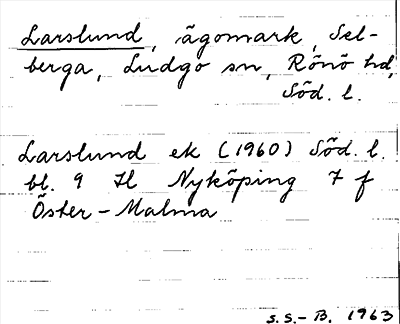 Larslund, ägomark, Sel-
berga, Ludgo sn, Rönö hd,
Söd. l.
Larslund ek (1960) Söd. l.
bl. 9 Il Nyköping 7 f
Öster-Malma
S.S.-B. 1963